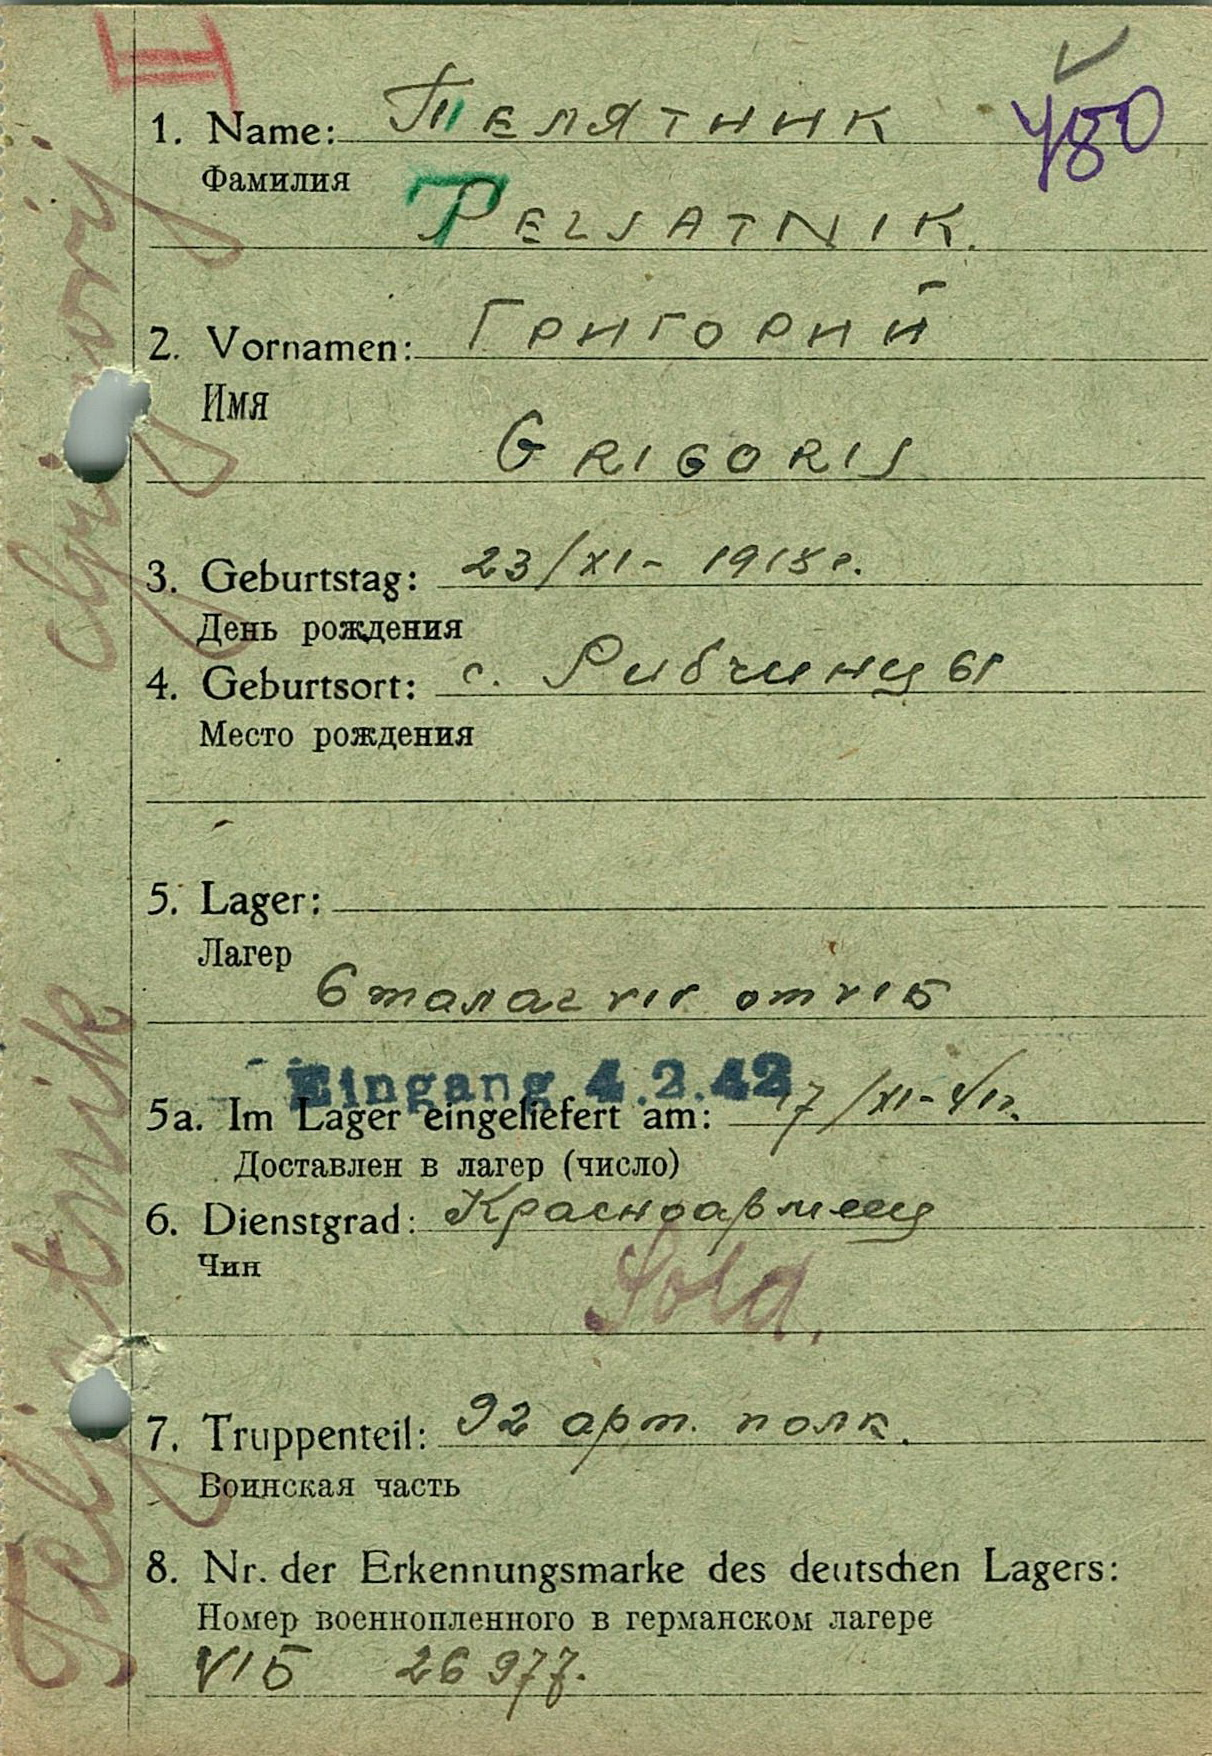 II
1. Name: Телятник
480
Фамилия
TELJATNIK.
2. Vornamen: Григорий
Имя
GRIGORIJ
3. Geburtstag: 23/XI - 1918 г.
День рождения
4. Geburtsort: с. Рибчинцы
Место рождения
5. Lager:
Лагер
Сталаг VII от VIБ
Eingang 4.2.42
5a. Im Lager eingeliefert am: 17/XI-41г.
Доставлен в лагер (число)
6. Dienstgrad: Красноармеец
Чин
Sold.
7. Truppenteil: 92 арт. полк.
Воинская часть
8. Nr. der Erkennungsmarke des deutschen Lagers:
Номер военнопленного в германском лагере
VIБ 26977.
Teljatnik Grigorij